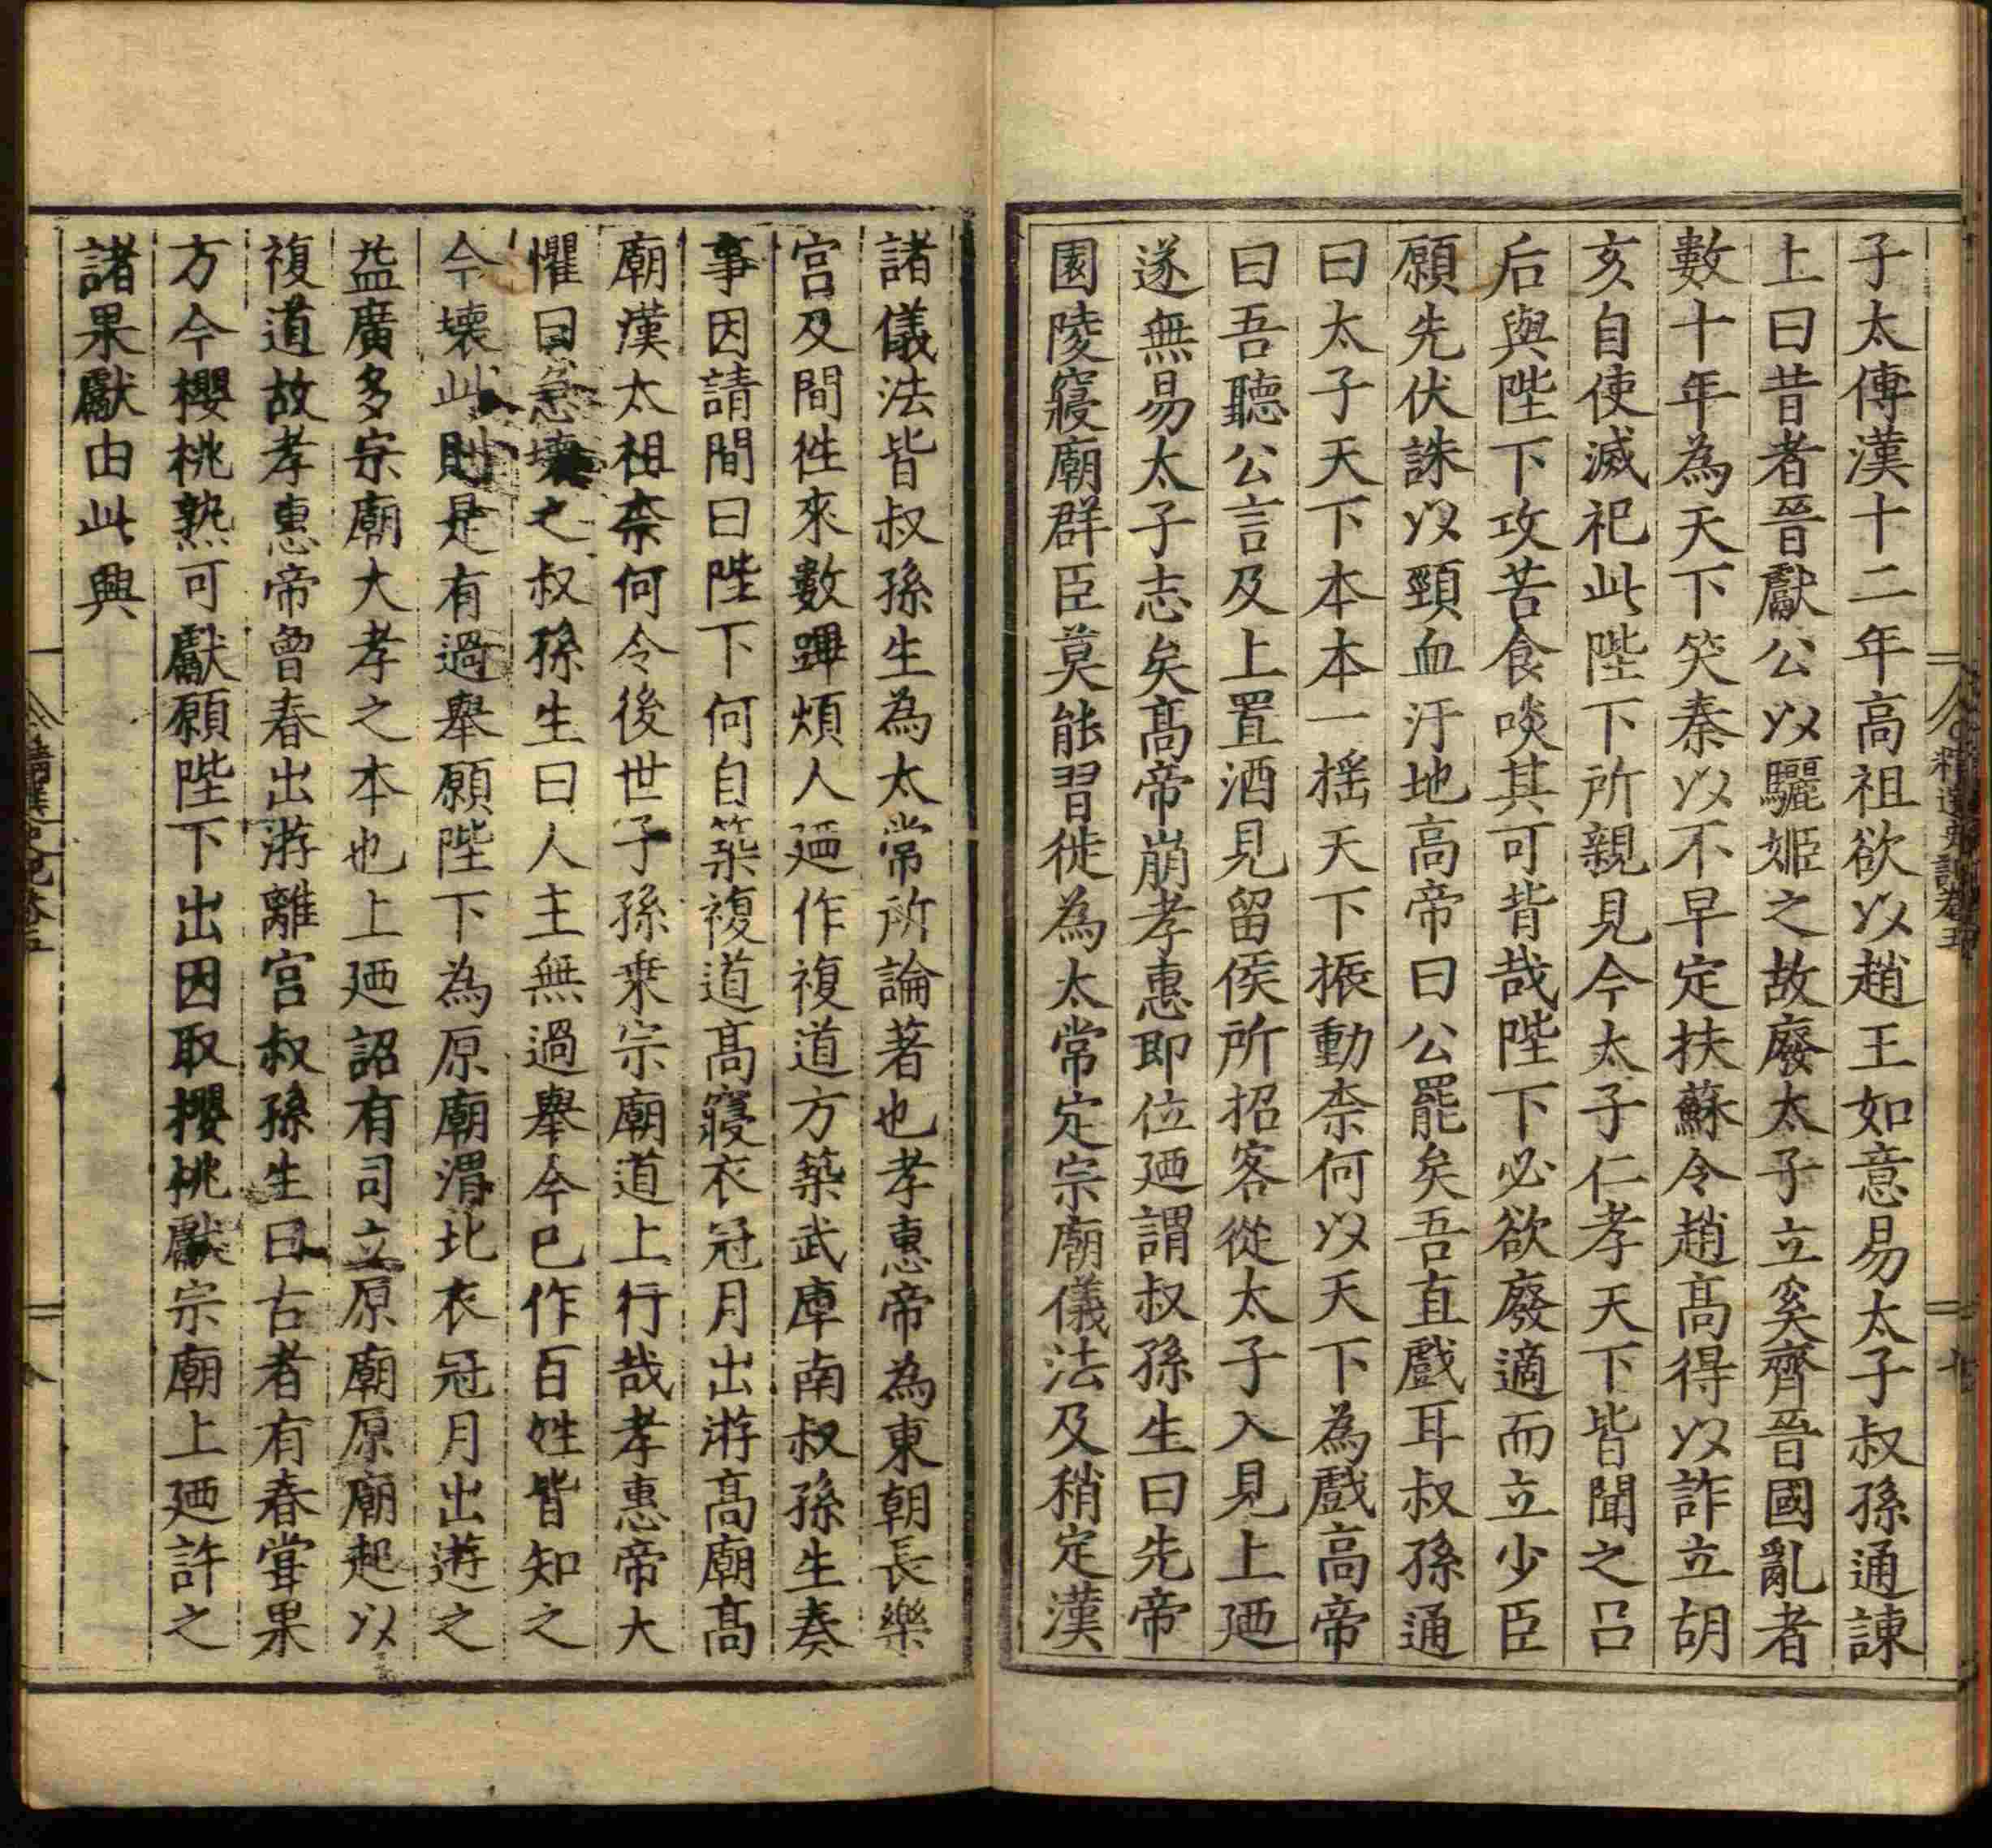 子太傅漢十二年高祖欲以趙王如意易太子叔孫通諫
上曰昔者晉獻公以驪姬之故廢太子立奚齊晉國亂者
數十年為天下笑秦以不早定扶蘇令趙高得以詐立胡
亥自使滅祀此陛下所親見今太子仁孝天下皆聞之吕
后與陛下攻苦食啖其可背哉陛下必欲廢適而立少臣
願先伏誅以頸血汙地高帝曰公罷矣吾直戲耳叔孫通
曰太子天下本本一揺天下振動柰何以天下為戲高帝
曰吾聽公言及上置酒見留侯所招客從太子入見上廼
遂無易太子志矣髙帝崩孝惠即位廼謂叔孫生曰先帝
園陵寢廟群臣莫能習徙為太常定宗廟儀法及稍定漢
諸儀法皆叔孫生為太常所論著也孝惠帝為東朝長樂
宫及間徃來數蹕煩人廼作複道方築武庫南叔孫生奏
事因請間曰陛下何自築複道髙寢衣冠月出游髙廟髙
廟漢太祖柰何令後世子孫乗宗廟道上行哉孝惠帝大
懼曰急壞之叔孫生曰人主無過舉今已作百姓皆知之
今壞此則是有過舉願陛下為原廟渭北衣冠月出遊之
益廣多宗廟大孝之本也上廼詔有司立原廟原廟起以
複道故孝惠帝曾春出游離宫叔孫生曰古者有春甞果
方今櫻桃熟可獻願陛下出因取櫻桃獻宗廟上廼許之
諸果獻由此興